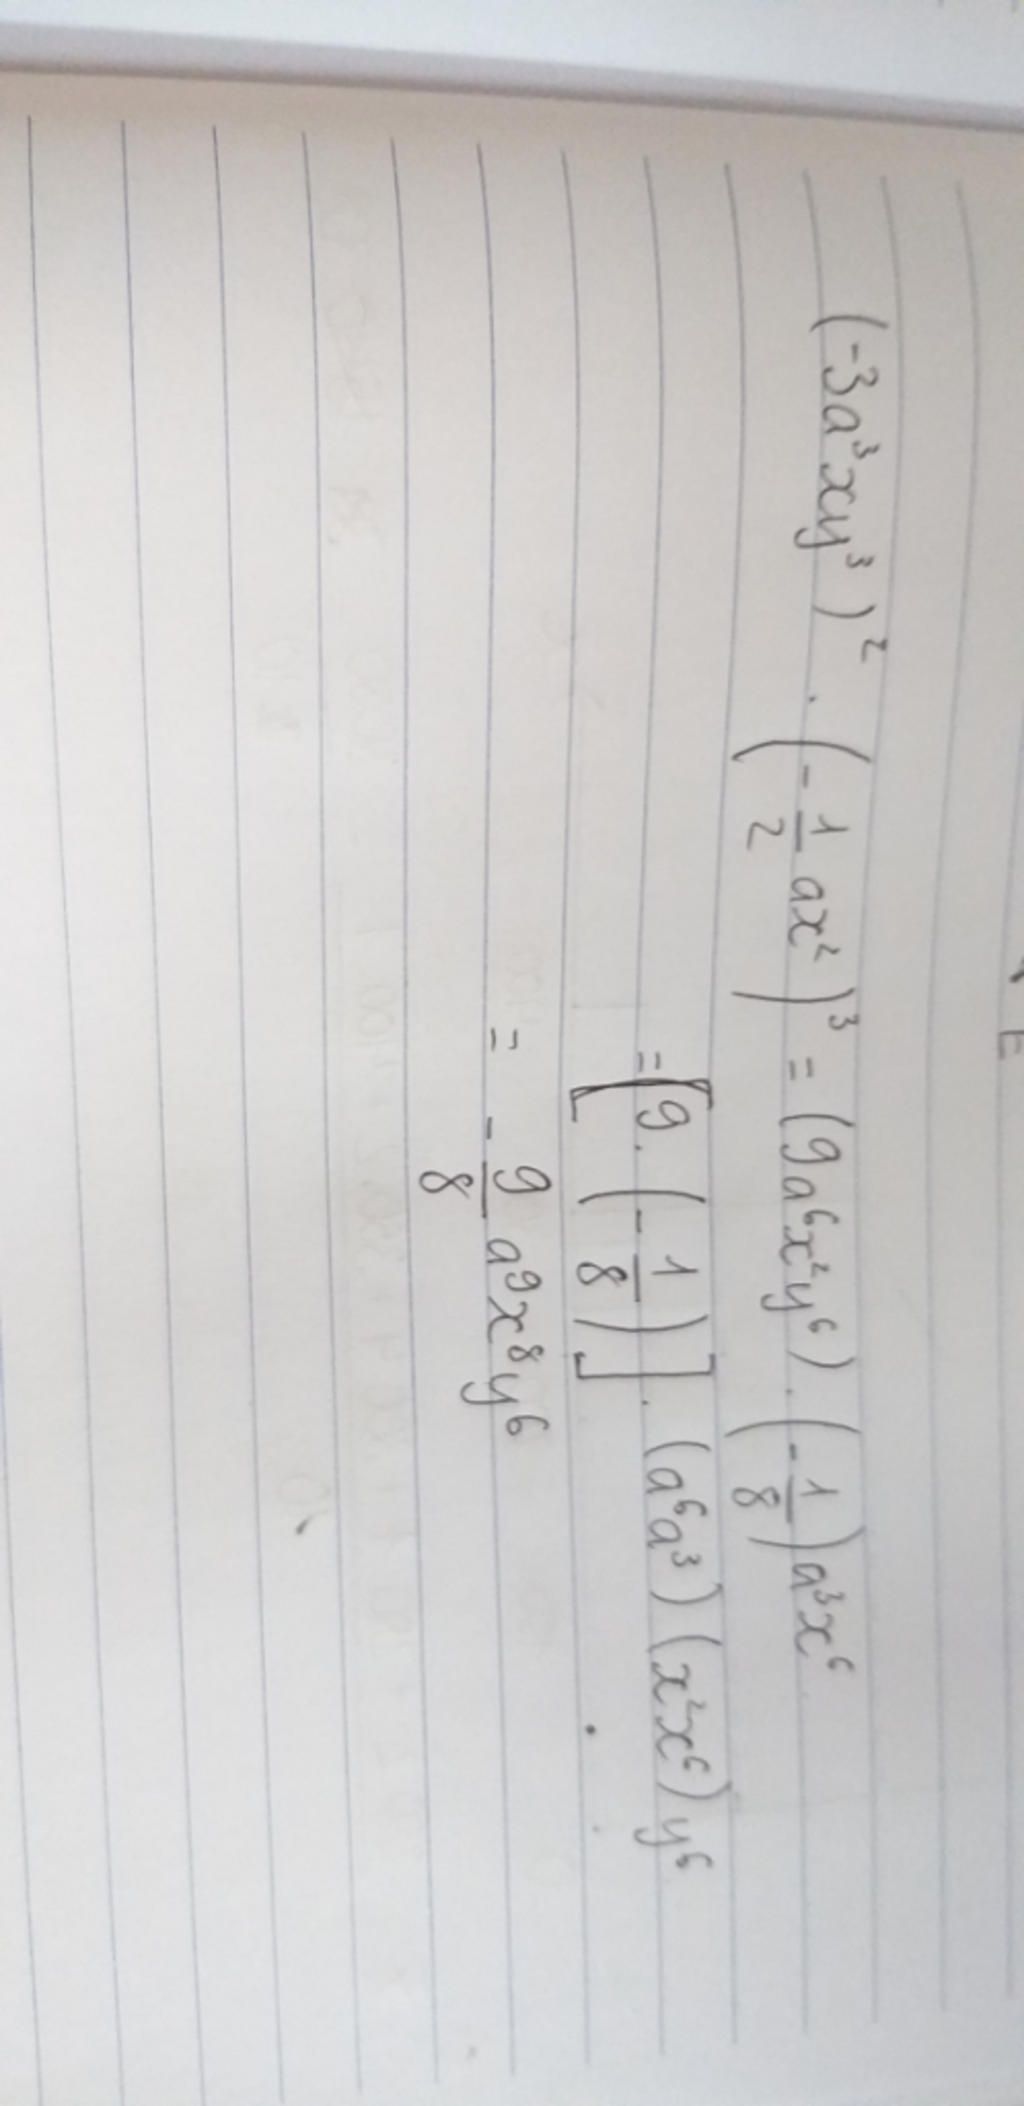 (-3a³xy³)² . (-1/2 ax²)³ = (9a⁶x²y⁶) . (-1/8)a³x⁶
= [9 . (-1/8)] . (a⁶a³) (x²x⁶) y⁶
= -9/8 a⁹x⁸y⁶